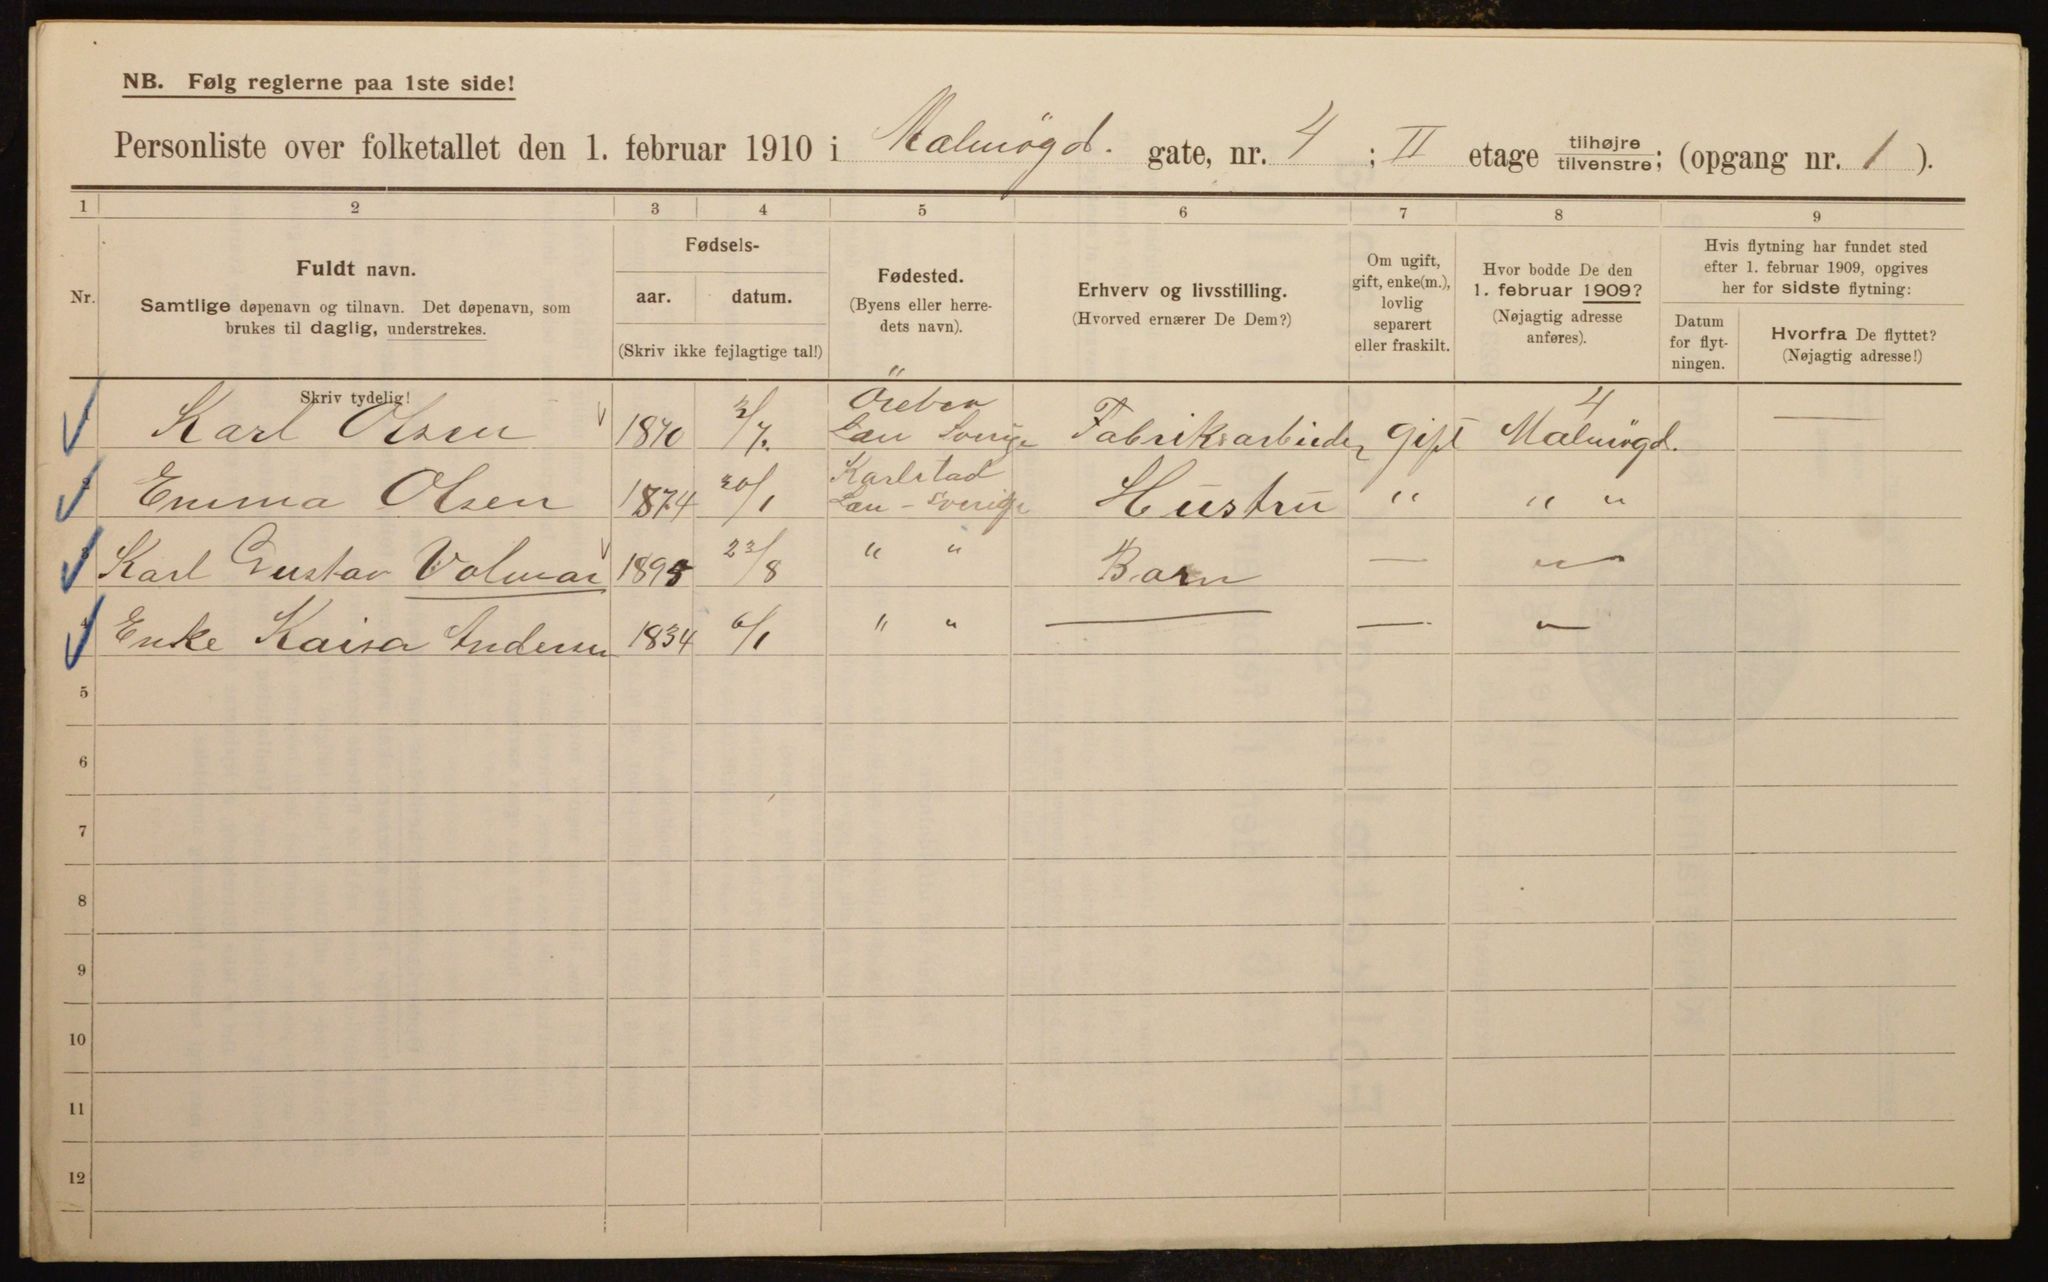 NB. Følg reglerne paa 1ste side!
Personliste over folketallet den 1. februar 1910 i Malmögd. gate, nr. 4; II etage tilhøjre tilvenstre; (opgang nr. 1).
1 2 3 4 5 6 7 8 9
Nr.
Fuldt navn.
Samtlige døpenavn og tilnavn. Det døpenavn, som
brukes til daglig, understrekes.
Skriv tydelig!
Fødsels-
aar. datum.
(Skriv ikke fejlagtige tal!)
Fødested.
(Byens eller herre-
dets navn).
Erhverv og livsstilling.
(Hvorved ernærer De Dem?)
Om ugift,
gift, enke(m.),
lovlig
separert
eller fraskilt.
Hvor bodde De den
1. februar 1909?
(Nøjagtig adresse
anføres).
Hvis flytning har fundet sted
efter 1. februar 1909, opgives
her for sidste flytning:
Datum
for flyt-
ningen.
Hvorfra De flyttet?
(Nøjagtig adresse!)
1 Karl Olsen 1870 /7. Örebro Len Sverige Fabriksarbeider gift 4 Malmögd. —
2 Emma Olsen 1874 20/1 Karlstad Len - Sverige Hustru " " "
3 Karl Gustav Volmar 1895 23/8 " " Barn — "
4 Enke Kaisa Andersen 1834 6/1 " " — — "
5
6
7
8
9
10
11
12